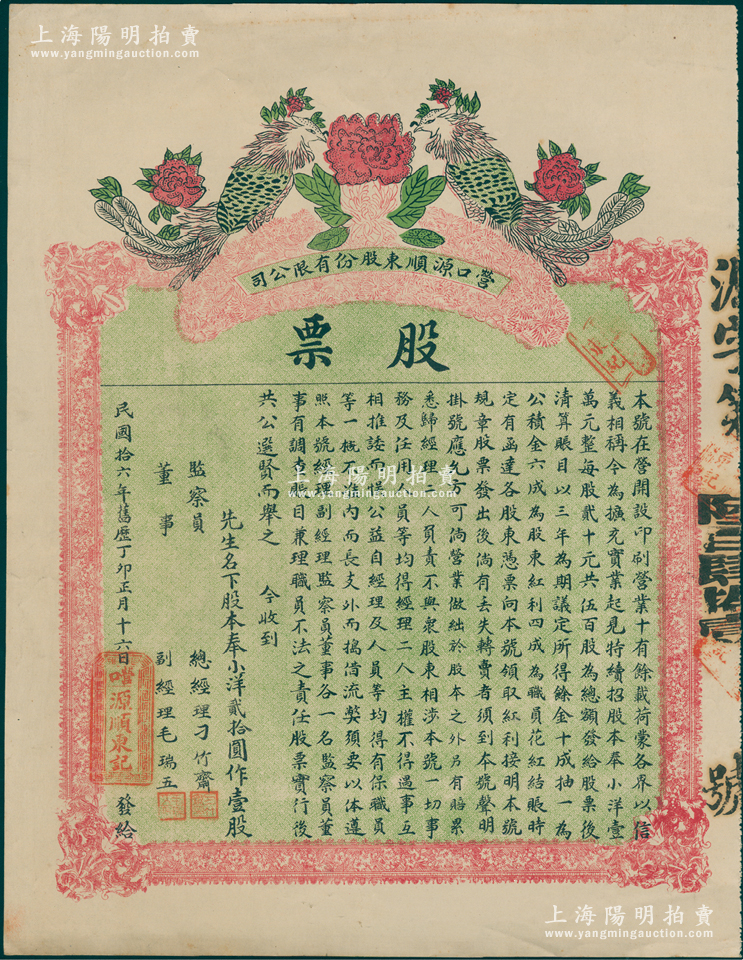 上海陽明拍賣
www.yangmingauction.com
營口源順東股份有限公司
股票
本號在營開設印刷營業十有餘載荷蒙各界以信
義相稱今為擴充實業起見特續招股本奉小洋壹
萬元整每股貳十元共伍百股為總額發給股票後
清算賬目以三年為期議定所得餘金十成抽一為
公積金六成為股東紅利四成為職員花紅結賬時
定有函達各股東憑票向本號領取紅利接明本號
規章股票發出後倘有丟失轉賣者須到本號聲明
掛號應允方可倘營業做絀於股本之外另有賠累
悉歸經理人員責不與衆股東相涉本號一切事
務及任用人員等均得經理二人主權不得遇事互
相推諉而悞公益自經理及人員等均得有保職員
等一概不准內而長支外而搗借流獘須要以体遵
照本號經理副經理監察員董事各一名監察員董
事有調查賬目兼理職員不法之責任股票實行後
共公選賢而舉之 今收到
先生名下股本奉小洋貳拾圓作壹股
監察員 總經理刁竹齋
董事 副經理毛瑞五
民國拾六年舊歷丁卯正月十六日 發給
源順東記
號
上海陽明拍賣
www.yangmingauction.com